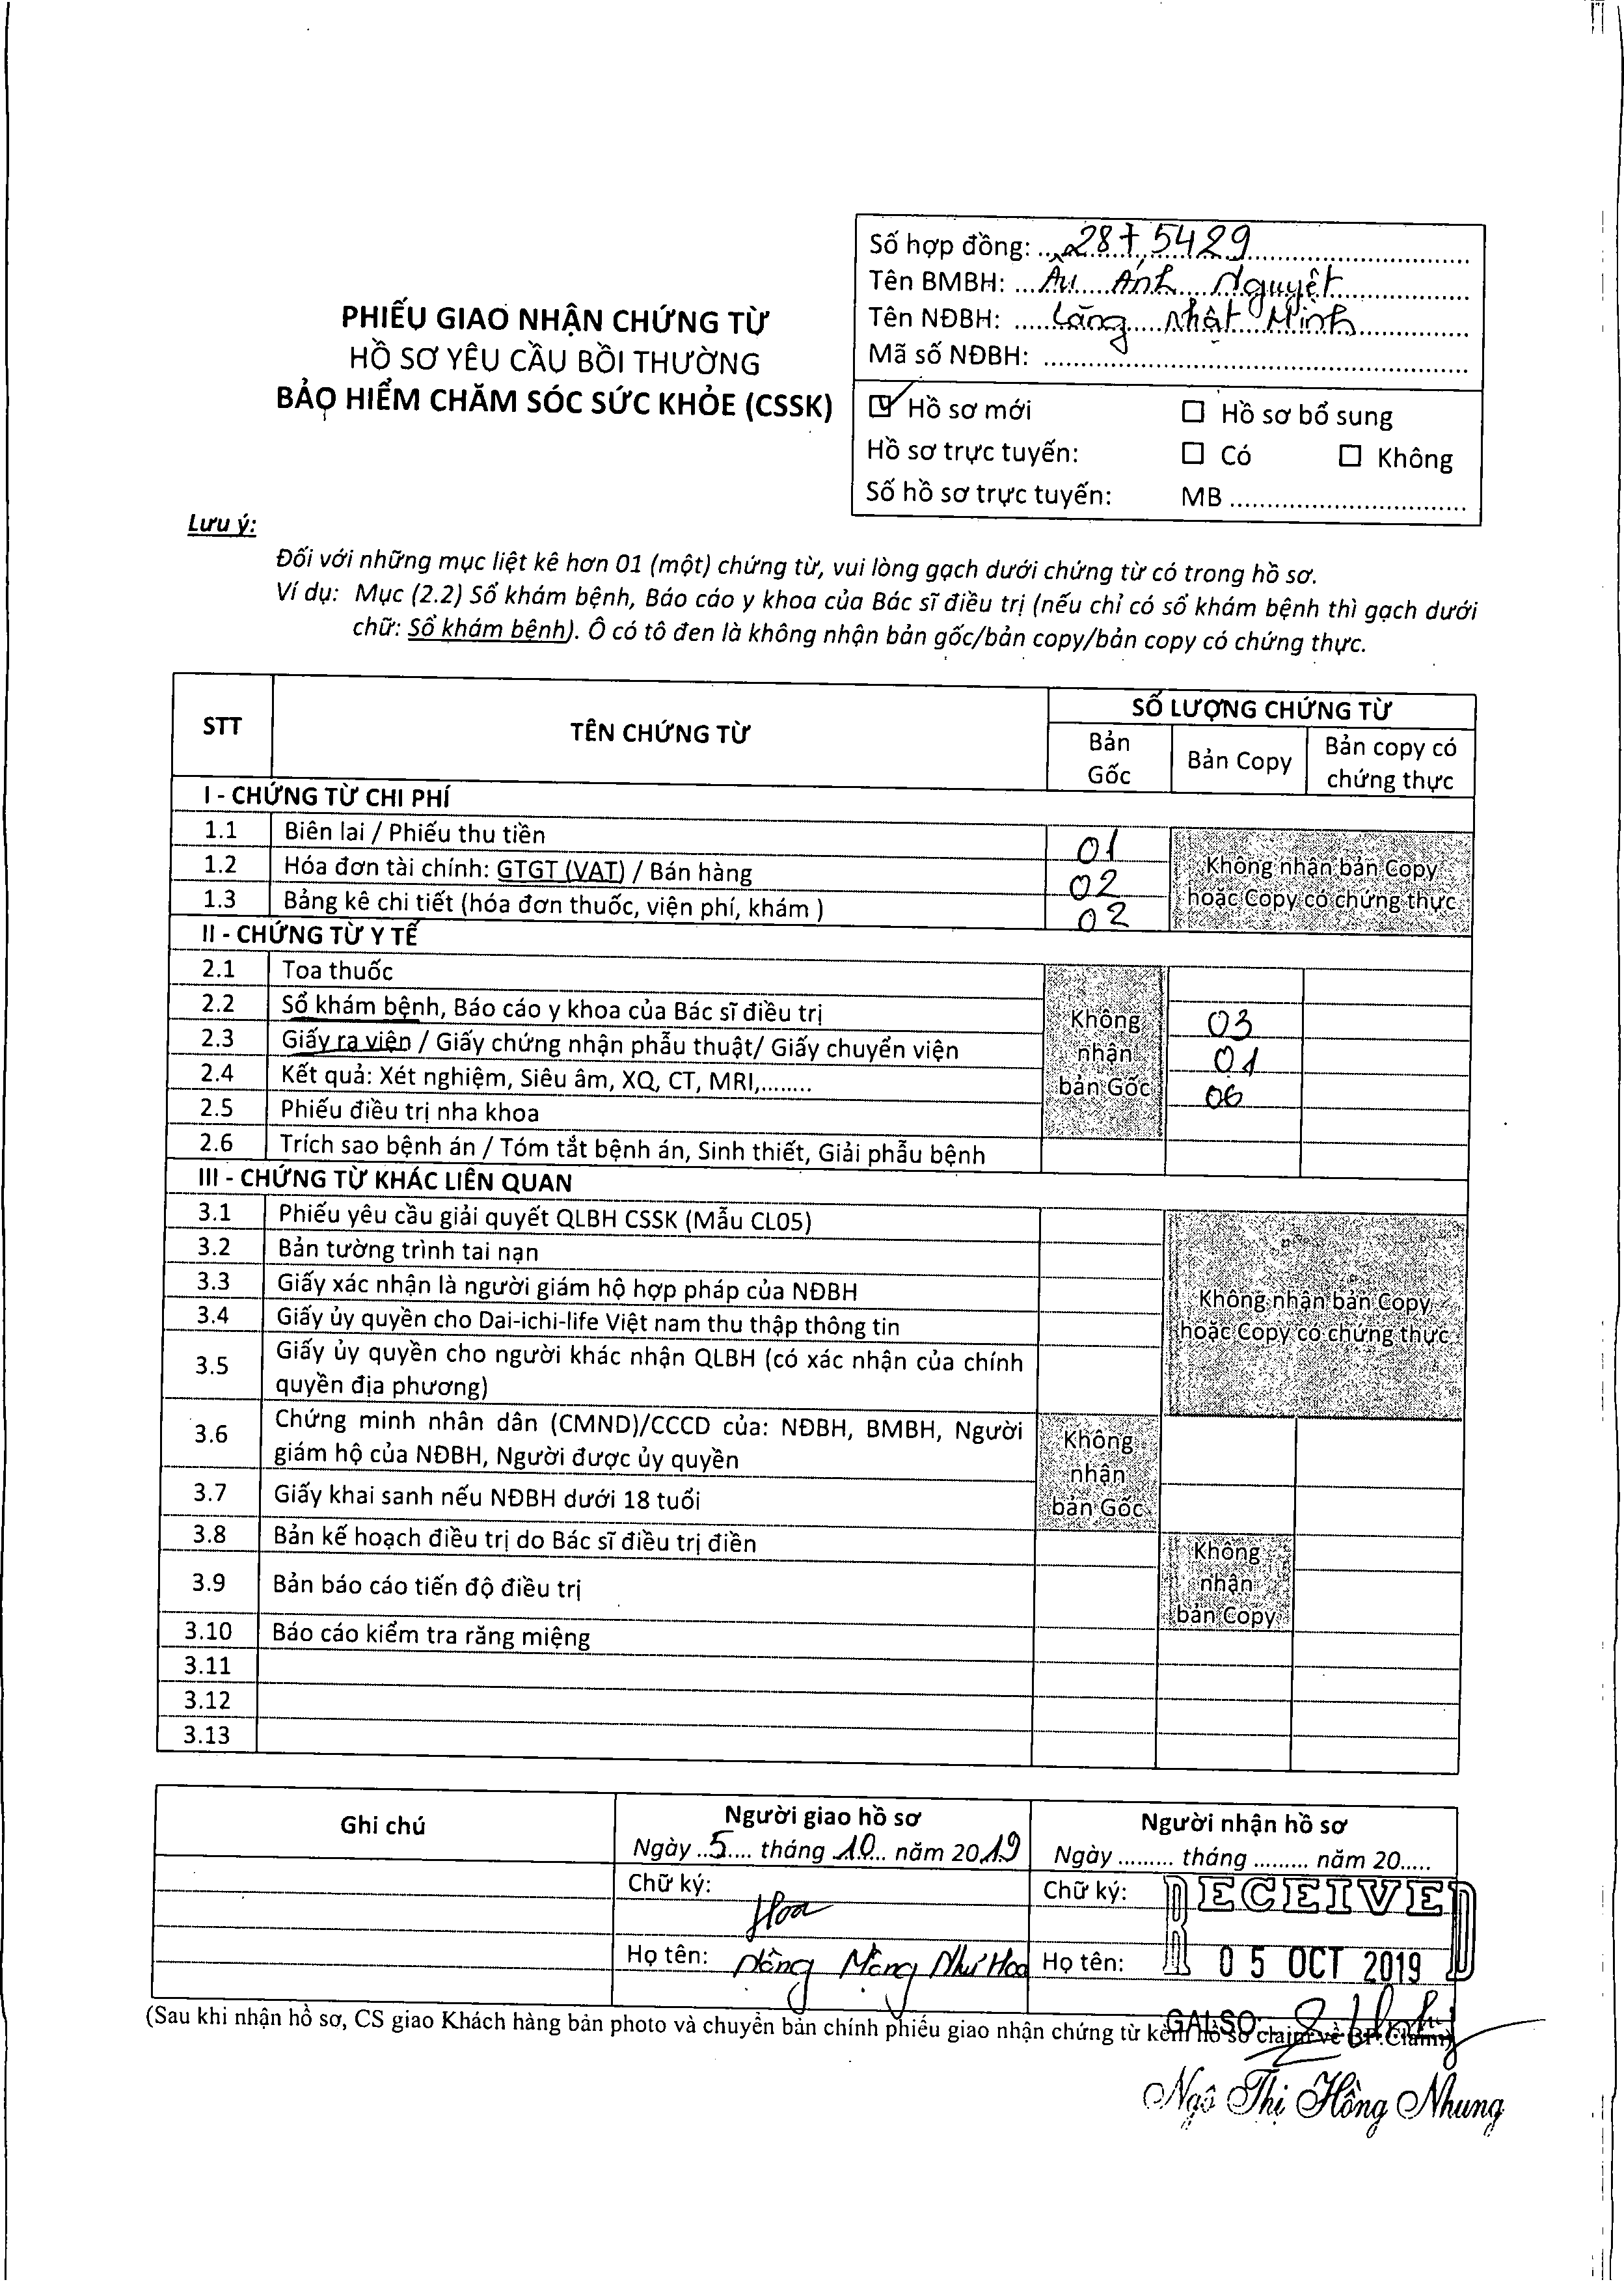 Số hợp đồng: 2875429
Tên BMBH: Âu Ánh Nguyệt
Tên NĐBH: Lăng Nhật Minh
Mã số NĐBH:
PHIẾU GIAO NHẬN CHỨNG TỪ
HỒ SƠ YÊU CẦU BỒI THƯỜNG
BẢO HIỂM CHĂM SÓC SỨC KHỎE (CSSK)
Hồ sơ mới Hồ sơ bổ sung
Hồ sơ trực tuyến: Có Không
Số hồ sơ trực tuyến: MB
Lưu ý:
Đối với những mục liệt kê hơn 01 (một) chứng từ, vui lòng gạch dưới chứng từ có trong hồ sơ.
Ví dụ: Mục (2.2) Sổ khám bệnh, Báo cáo y khoa của Bác sĩ điều trị (nếu chỉ có sổ khám bệnh thì gạch dưới
chữ: Sổ khám bệnh). Ô có tô đen là không nhận bản gốc/bản copy/bản copy có chứng thực.
STT TÊN CHỨNG TỪ SỐ LƯỢNG CHỨNG TỪ
Bản Gốc Bản Copy Bản copy có chứng thực
I - CHỨNG TỪ CHI PHÍ
1.1 Biên lai / Phiếu thu tiền 01
1.2 Hóa đơn tài chính: GTGT (VAT) / Bán hàng 02
1.3 Bảng kê chi tiết (hóa đơn thuốc, viện phí, khám ) 02
Không nhận bản Copy
hoặc Copy có chứng thực
II - CHỨNG TỪ Y TẾ
2.1 Toa thuốc
2.2 Sổ khám bệnh, Báo cáo y khoa của Bác sĩ điều trị 03
2.3 Giấy ra viện / Giấy chứng nhận phẫu thuật/ Giấy chuyển viện 01
2.4 Kết quả: Xét nghiệm, Siêu âm, XQ, CT, MRI,........ 06
2.5 Phiếu điều trị nha khoa
Không
nhận
bản Gốc
2.6 Trích sao bệnh án / Tóm tắt bệnh án, Sinh thiết, Giải phẫu bệnh
III - CHỨNG TỪ KHÁC LIÊN QUAN
3.1 Phiếu yêu cầu giải quyết QLBH CSSK (Mẫu CL05)
3.2 Bản tường trình tai nạn
3.3 Giấy xác nhận là người giám hộ hợp pháp của NĐBH
3.4 Giấy ủy quyền cho Dai-ichi-life Việt nam thu thập thông tin
3.5 Giấy ủy quyền cho người khác nhận QLBH (có xác nhận của chính
quyền địa phương)
Không nhận bản Copy
hoặc Copy có chứng thực
3.6 Chứng minh nhân dân (CMND)/CCCD của: NĐBH, BMBH, Người
giám hộ của NĐBH, Người được ủy quyền
3.7 Giấy khai sanh nếu NĐBH dưới 18 tuổi
Không
nhận
bản Gốc
3.8 Bản kế hoạch điều trị do Bác sĩ điều trị điền
3.9 Bản báo cáo tiến độ điều trị
Không
nhận
bản Copy
3.10 Báo cáo kiểm tra răng miệng
3.11
3.12
3.13
Ghi chú Người giao hồ sơ Người nhận hồ sơ
Ngày 5 tháng 10 năm 2019 Ngày ......... tháng ......... năm 20.....
Chữ ký: Hoa Chữ ký: RECEIVED
Họ tên: Nông Mộng Như Hoa Họ tên: 05 OCT 2019
(Sau khi nhận hồ sơ, CS giao Khách hàng bản photo và chuyển bản chính phiếu giao nhận chứng từ kèm hồ sơ claim về BP.Claim)
GALSO
Ngô Thị Hồng Nhung